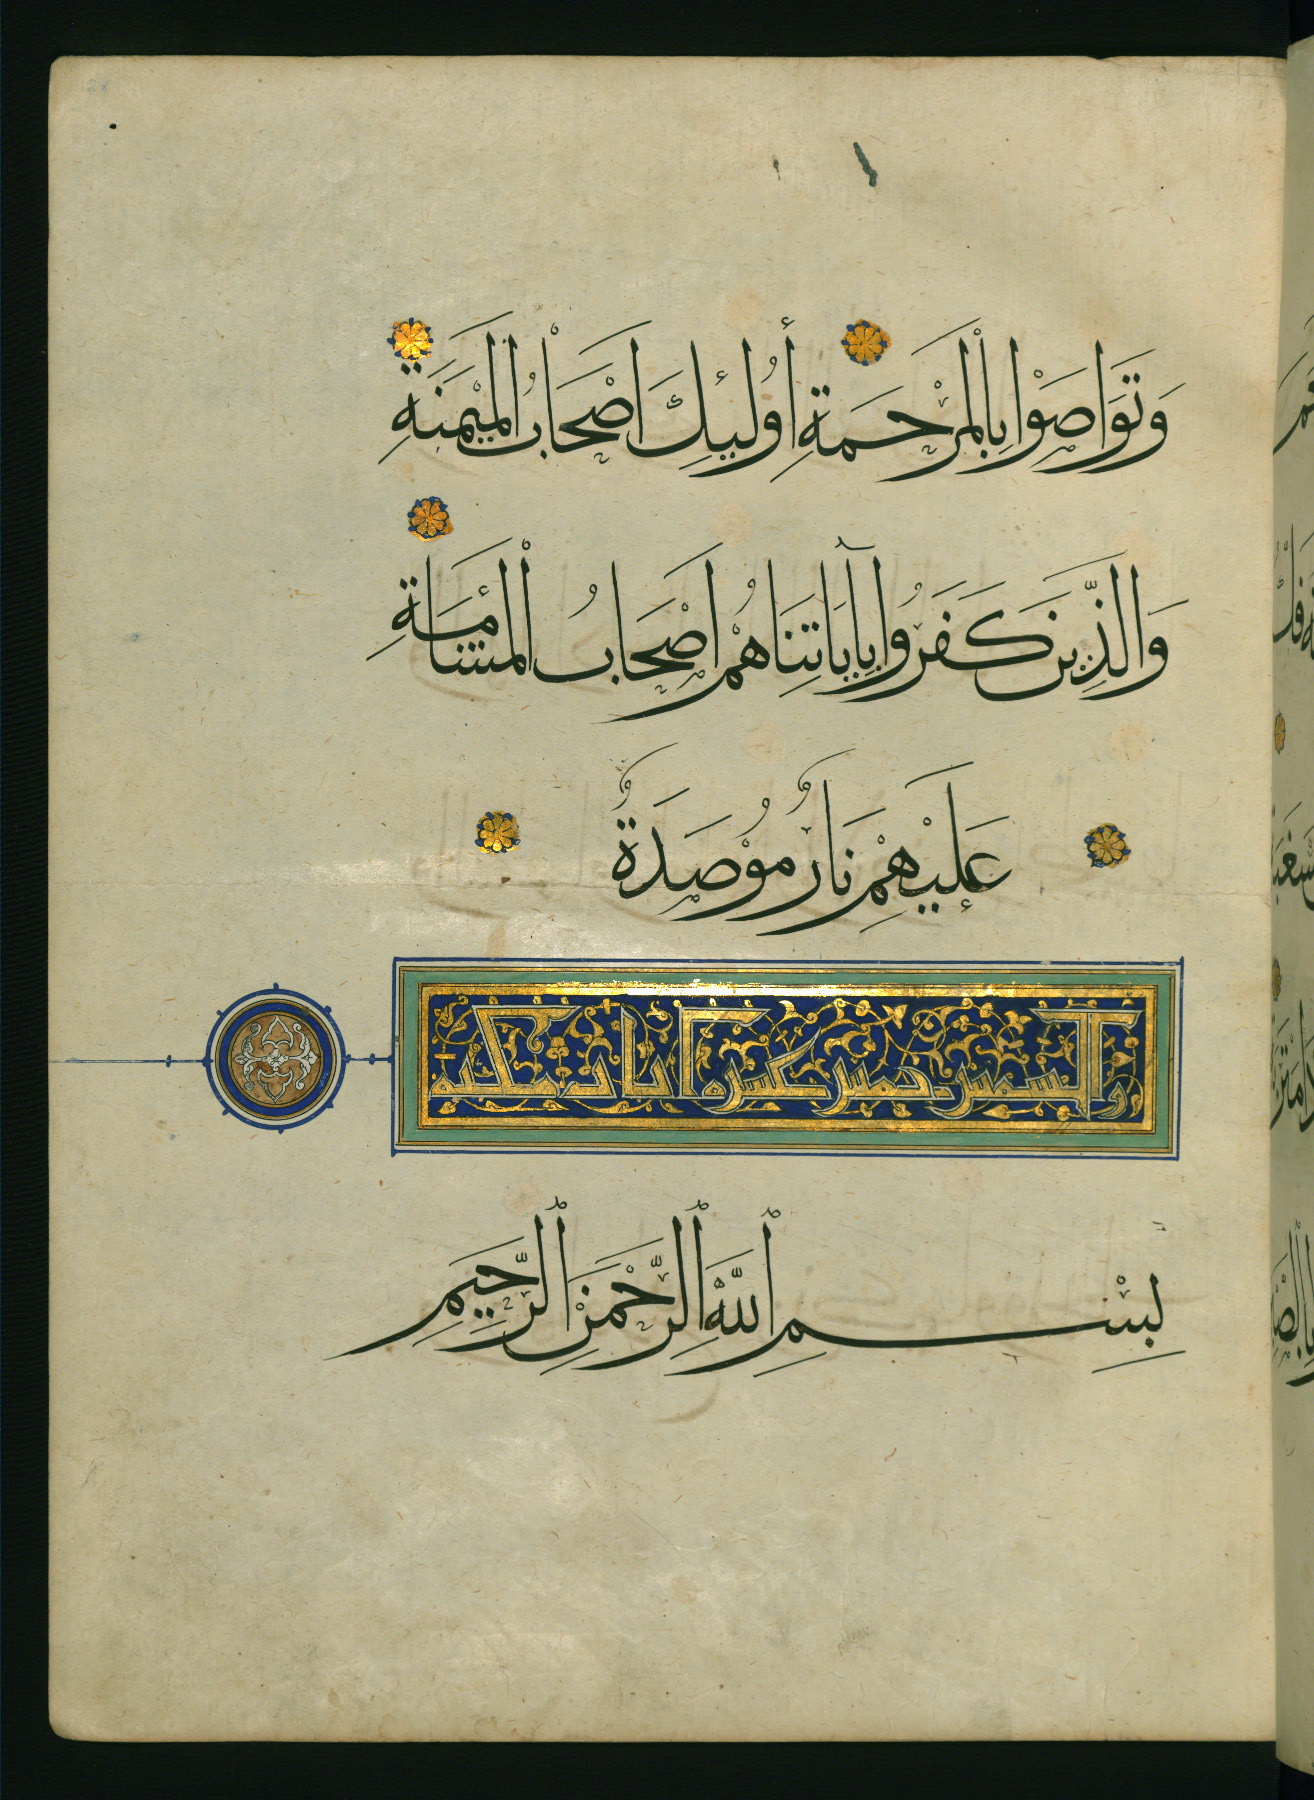 وَتَوَاصَوْا بِالْمَرْحَمَةِ أُولَئِكَ اَصْحَابُ الْمَيْمَنَةِ
وَالَّذِينَ كَفَرُوا بِآيَاتِنَا هُمْ اَصْحَابُ الْمَشْأَمَةِ
عَلَيْهِمْ نَارٌ مُوصَدَةٌ
والشمس خمس عشرة اية مكية
بِسْمِ اللَّهِ الرَّحْمَنِ الرَّحِيمِ